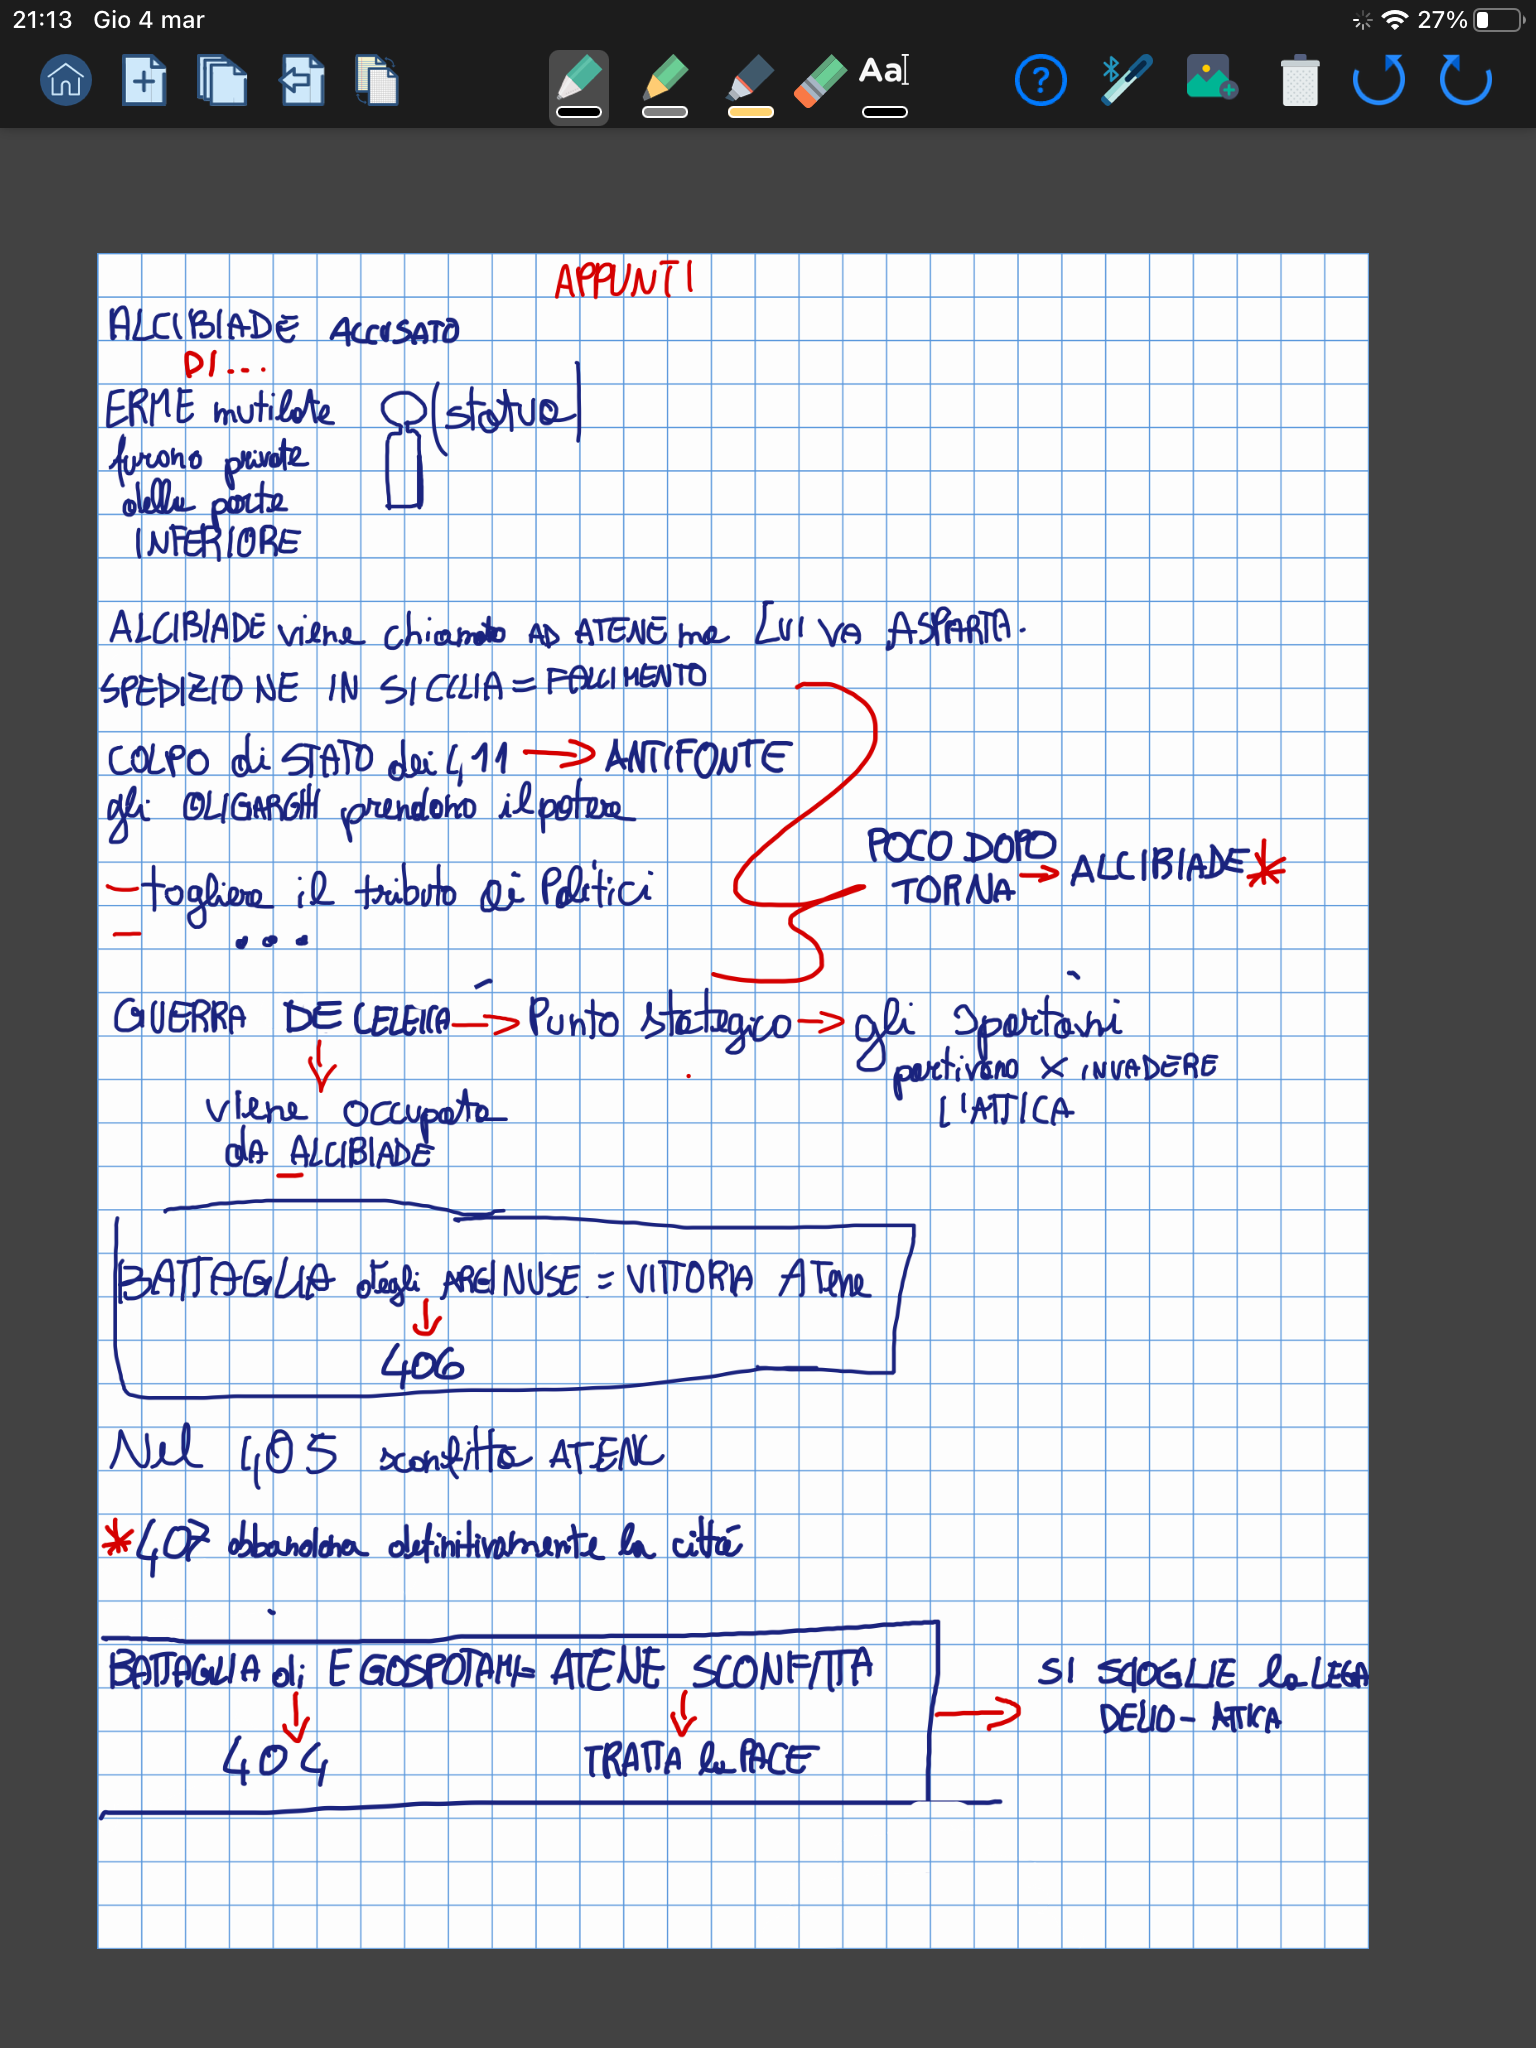 21:13 Gio 4 mar 27%
Aa
APPUNTI
ALCIBIADE ACCUSATO
DI...
ERME mutilate (statua)
furono private
della parte
INFERIORE
ALCIBIADE viene chiamato AD ATENE ma LUI VA A SPARTA.
SPEDIZIONE IN SICILIA = FALLIMENTO
COLPO di STATO dei 411 → ANTIFONTE
gli OLIGARCHI prendono il potere
POCO DOPO
TORNA → ALCIBIADE *
- togliere il tributo ai Politici
- ...
GUERRA DECELEICA → Punto stategico → gli Spartani
partivano X INVADERE
L'ATTICA
↓
viene occupata
dA ALCIBIADE
BATTAGLIA degli ARGINUSE = VITTORIA ATene
↓
406
Nel 405 sconfitta ATENE
* 407 abbandona definitivamente la città
BATTAGLIA di EGOSPOTAMI = ATENE SCONFITTA → SI SCIOGLIE la LEGA
DELIO-ATTICA
↓ ↓
404 TRATTA la PACE